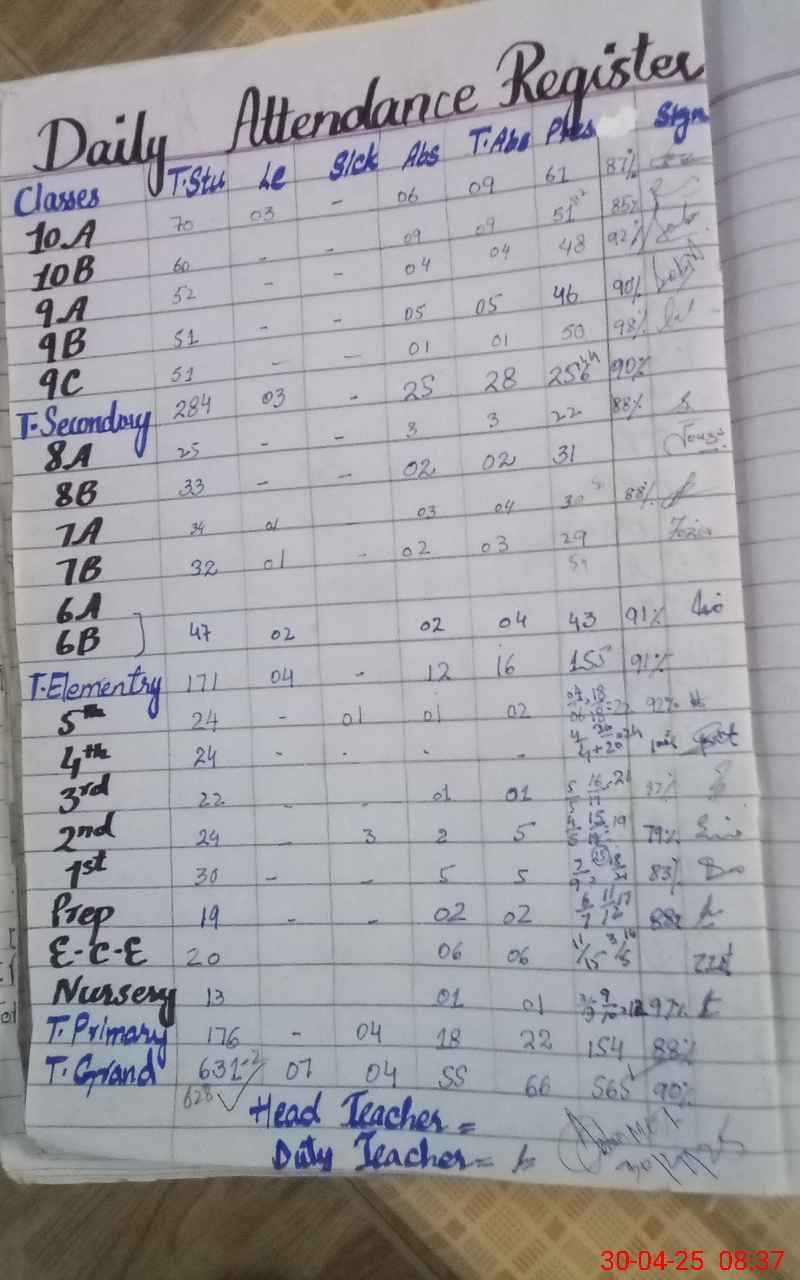 Daily Attendance Register
Classes T.Stu Le Sick Abs T.Abs Pres Sign
10A 70 03 - 06 09 61 87%
10B 60 - - 09 09 51 85%
9A 52 - - 04 04 48 92%
9B 51 - - 05 05 46 90%
9C 51 - - 01 01 50 98%
T.Secondary 284 03 - 25 28 256 90%
8A 25 - - 3 3 22 88%
8B 33 - - 02 02 31
7A 34 01 - 03 04 30 88%
7B 32 01 - 02 03 29
6A
6B ] 47 02 02 04 43 91%
T.Elementry 171 04 - 12 16 155 91%
5th 24 - 01 01 02 92%
4th 24 - - - -
3rd 22 - - 01 01
2nd 24 - 3 2 5 79%
1st 30 - - 5 5 83%
Prep 19 - - 02 02
E-C-E 20 06 06
Nursery 13 01 01
T.Primary 176 - 04 18 22 154 88%
T.Grand 631-2 07 04 55 66 565 90%
628 ✓
Head Teacher =
Duty Teacher =
30-04-25 08:37